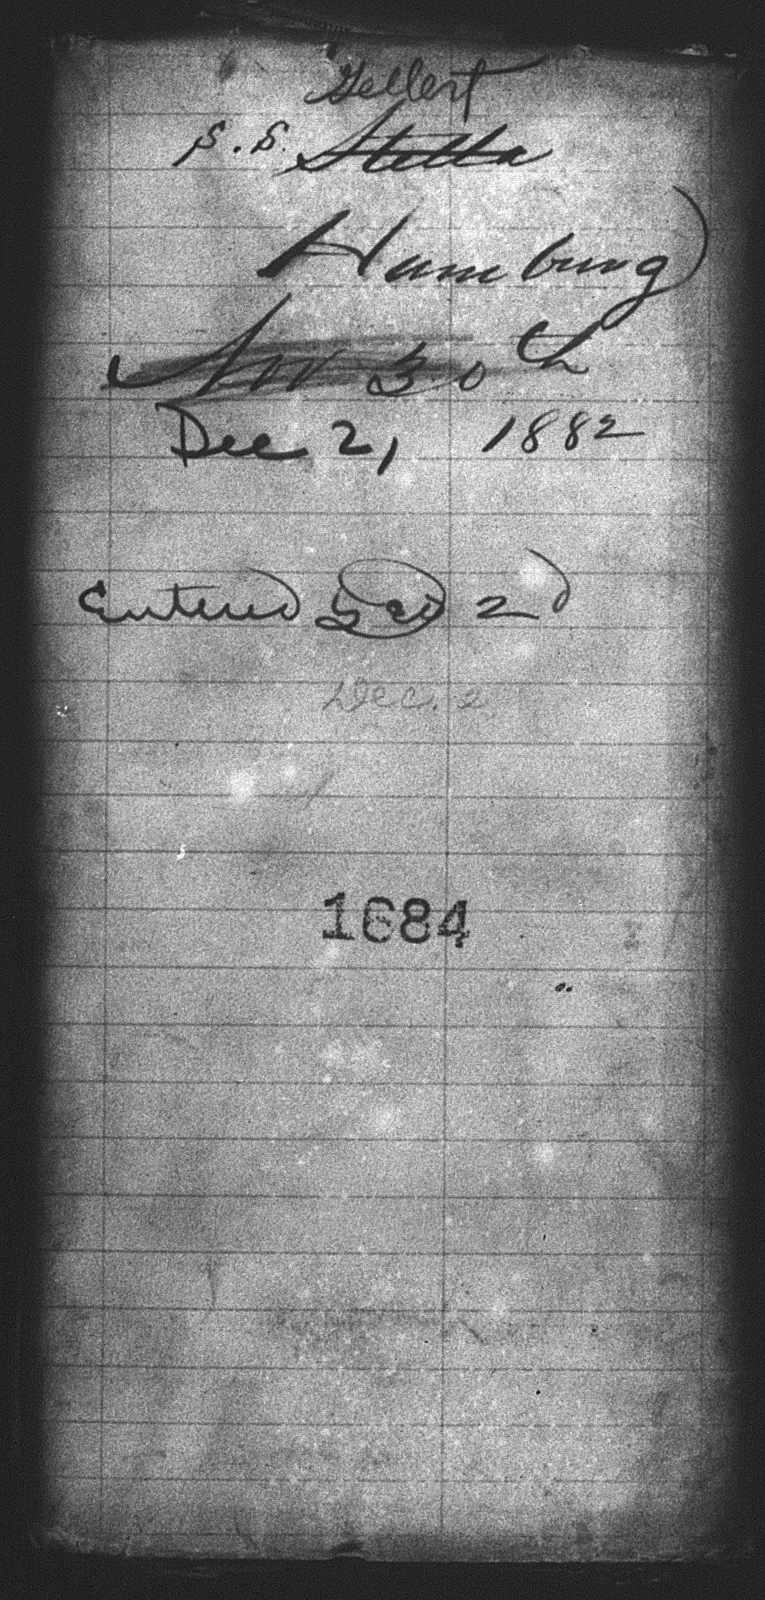 Gellert
S.S. Stella
Hamburg
Nov 30th
Dec 21 1882
Entered Dec 2
Dec. 2
1684